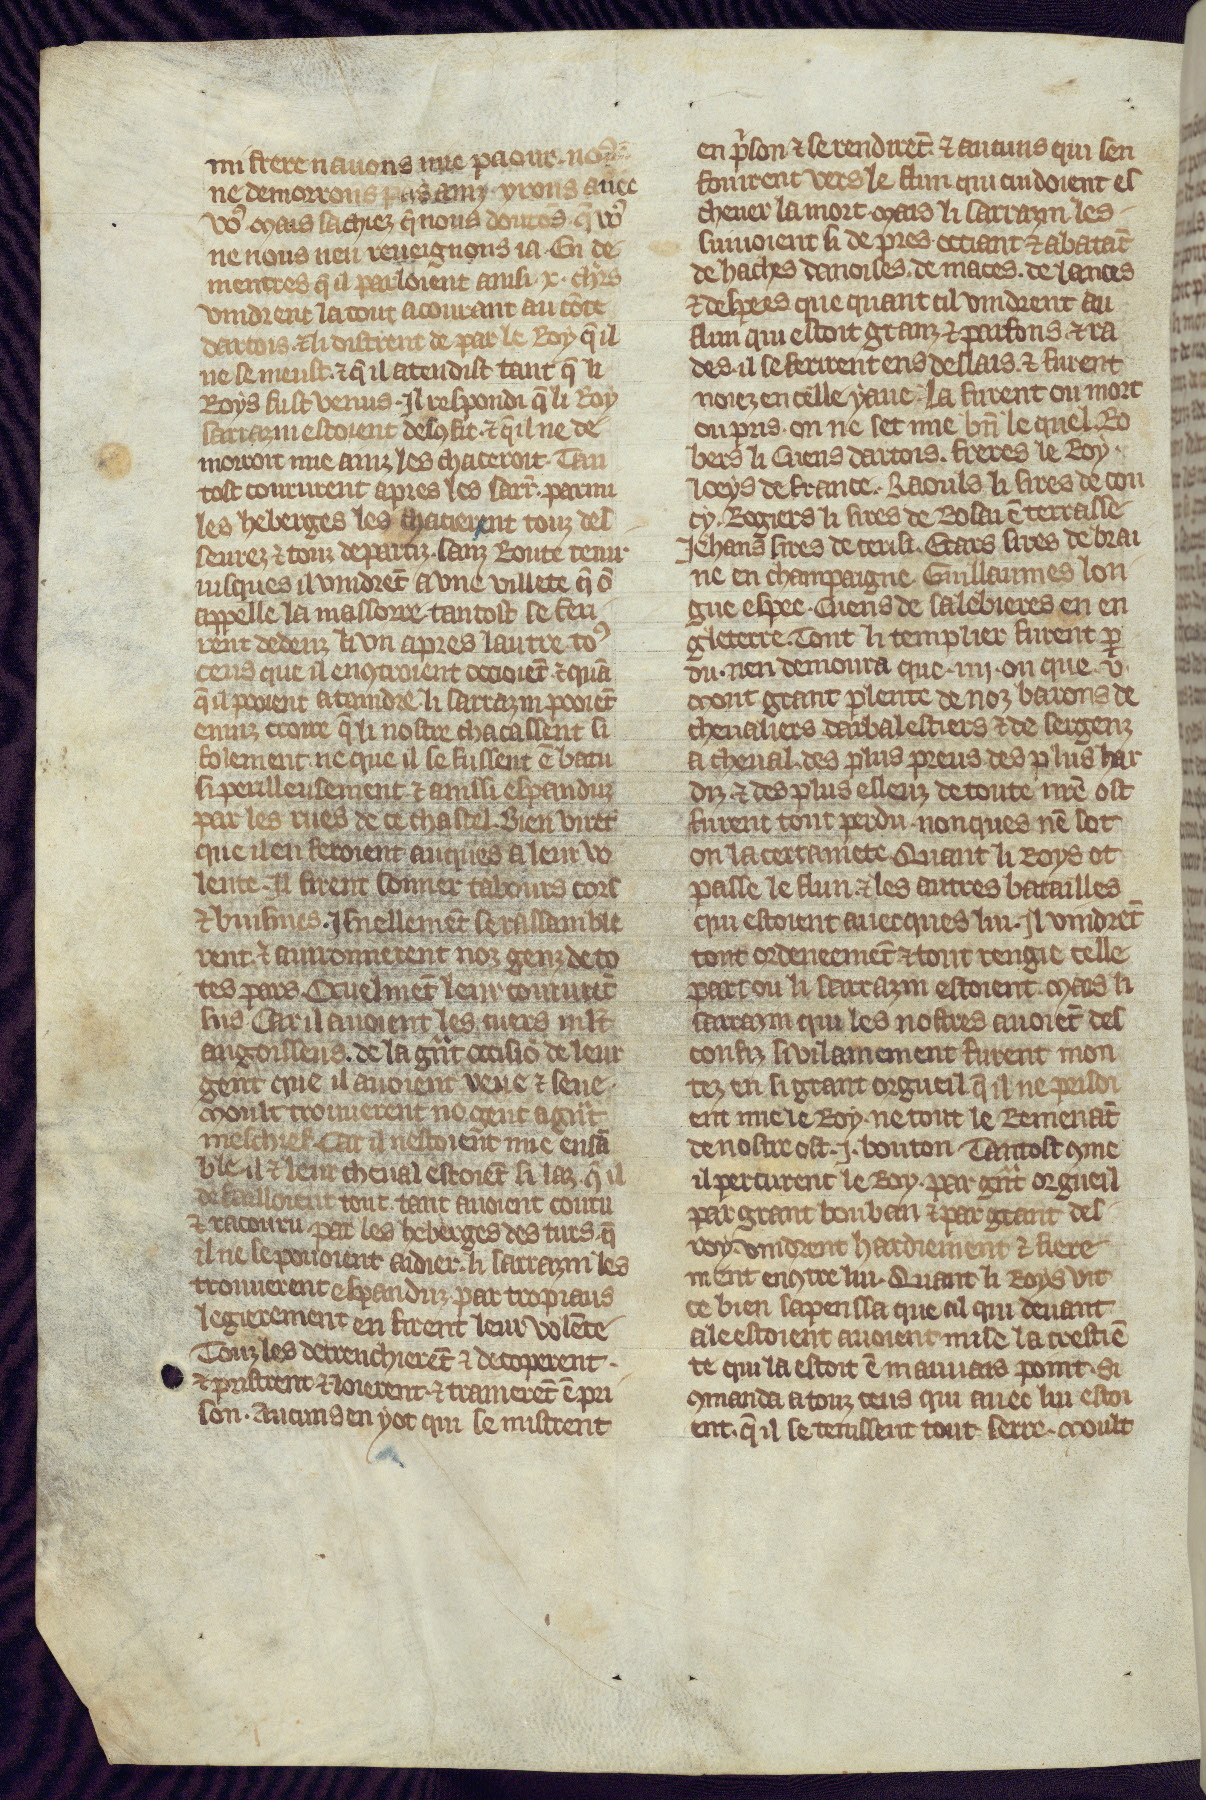 mi frere nauons mie paour. no9
ne demorrons pas ainz yrons auec
vo9 mais sachiez q̄ nous doutōs q̄ vo9
ne nous nen reueignons ia. En de
mentres q̄ il parloient ainsi .x. chr̄s
vindrent la tout acourant au cōte
dartois. ⁊ li distrent de par le Roy q̄ il
ne se meust. ⁊ q̄ il atendist tant q̄ li
Roys fust venus. Il respondi q̄ li Roy
sarrazin estoient desꝯfit. ⁊ q̄ il ne de
morroit mie ainz les chaceroit. Tan
tost coururent apres les sarr̄. parmi
les heberges les chacierent touz des
seurez ⁊ touz departiz. sanz Route tenir
iusques il vindrēt a vne villete q̄ ō
appelle la massorre. tantost se feri
rent dedenz li vn apres lautre. to9
ceus que il enꝯtroient occioiēt. ⁊ quā
q̄ il pooient ateindre. li sarrazin pooiēt
enuiz croire q̄ li nostre chacassent si
folement. ne que il se fussent ē batu
si perilleusement ⁊ ainssi espanduz
par les rues de ce chastel. Bien virēt
que il en feroient auques a leur vo
lente. Il firent sonner tabours cors
⁊ buisines. Isnellemēt se rassamble
rent. ⁊ auironnerent noz genz de to
tes pars. Cruelmēt leur coururēt
sus Car il auoient les cuers mlt̄
angoisseus. de la grāt occisiō de leur
gent que il auoient veue ⁊ seue.
Moult trouuerent no gent a grāt
meschief. Car il nestoient mie ensā
ble. il ⁊ leur cheual estoiēt si laz. q̄ il
defailloient tout. tant auoient couru
⁊ racouru par les heberges des turs. q̄
il ne se pouoient aidier. li sarrazin les
trouuerent espanduz par tropiaus
legierement en firent leur volēte
Touz les detrenchierēt ⁊ decoperent.
⁊ pristrent ⁊ loierent. ⁊ trainerēt ē pri
son. Aucuns en yot qui se mistrent
en p̄son ⁊ se rendirēt. ⁊ aucuns qui sen
fouirent vers le flun qui cuidoient es
cheuer la mort. Mais li sarrazin les
suiuoient si de pres occiant ⁊ abatāt
de haches danoises. de maces. de lances
⁊ despees que quant cil vindrent au
flun qui estoit granz ⁊ parfons. ⁊ ra
des. il se ferirent ens deslais. ⁊ furent
noiez en celle yaue. La furent ou mort
ou pris. on ne set mie bn̄ le quel. Ro
bers li Cuens dartois. freres le Roy
loeys de france. Raouls li sires de cou
cy. Rogiers li sires de Rosai ē terrasse
Jehans sires de cerisi. Erars sires de brai
ne en champaigne. Guillaumes lon
gue espee. Cuens de salebieres en en
gleterre. Tout li templier furent ꝑ
du. nen demoura que .iiij. ou que .v.
Mout grant plente de noz barons de
cheualiers darbalestiers ⁊ de sergenz
a cheual. des plus preus des plus har
diz. ⁊ des plus esleuz de toute nr̄e ost
furent tout perdu. nonques nē sot
on la certainete. Quant li Roys ot
passe le flun. ⁊ les autres batailles
qui estoient auecques lui. Il vindrēt
tout ordeneemēt ⁊ tout rengie celle
part ou li sarrazin estoient. Mais li
sarrazin qui les nostres auoiēt des
confiz si vilainement furent mon
tez en si grant orgueil q̄ il ne prisoi
ent mie le Roy. ne tout le Remenāt
de nostre ost .j. bouton. Tantost ꝯme
il percurent le Roy. par grāt orgueil
par grant bouban ⁊ par grant des
roy. vindrent hardiement ⁊ fiere
ment enꝯtre lui. Quant li Roys vit
ce bien sapenssa que cil qui deuant
ale estoient auoient mise la crestiē
te qui la estoit ē mauuais point. Si
ꝯmanda a touz ceus qui auec lui estoi
ent. q̄ il se tenissent tout serre. Moult